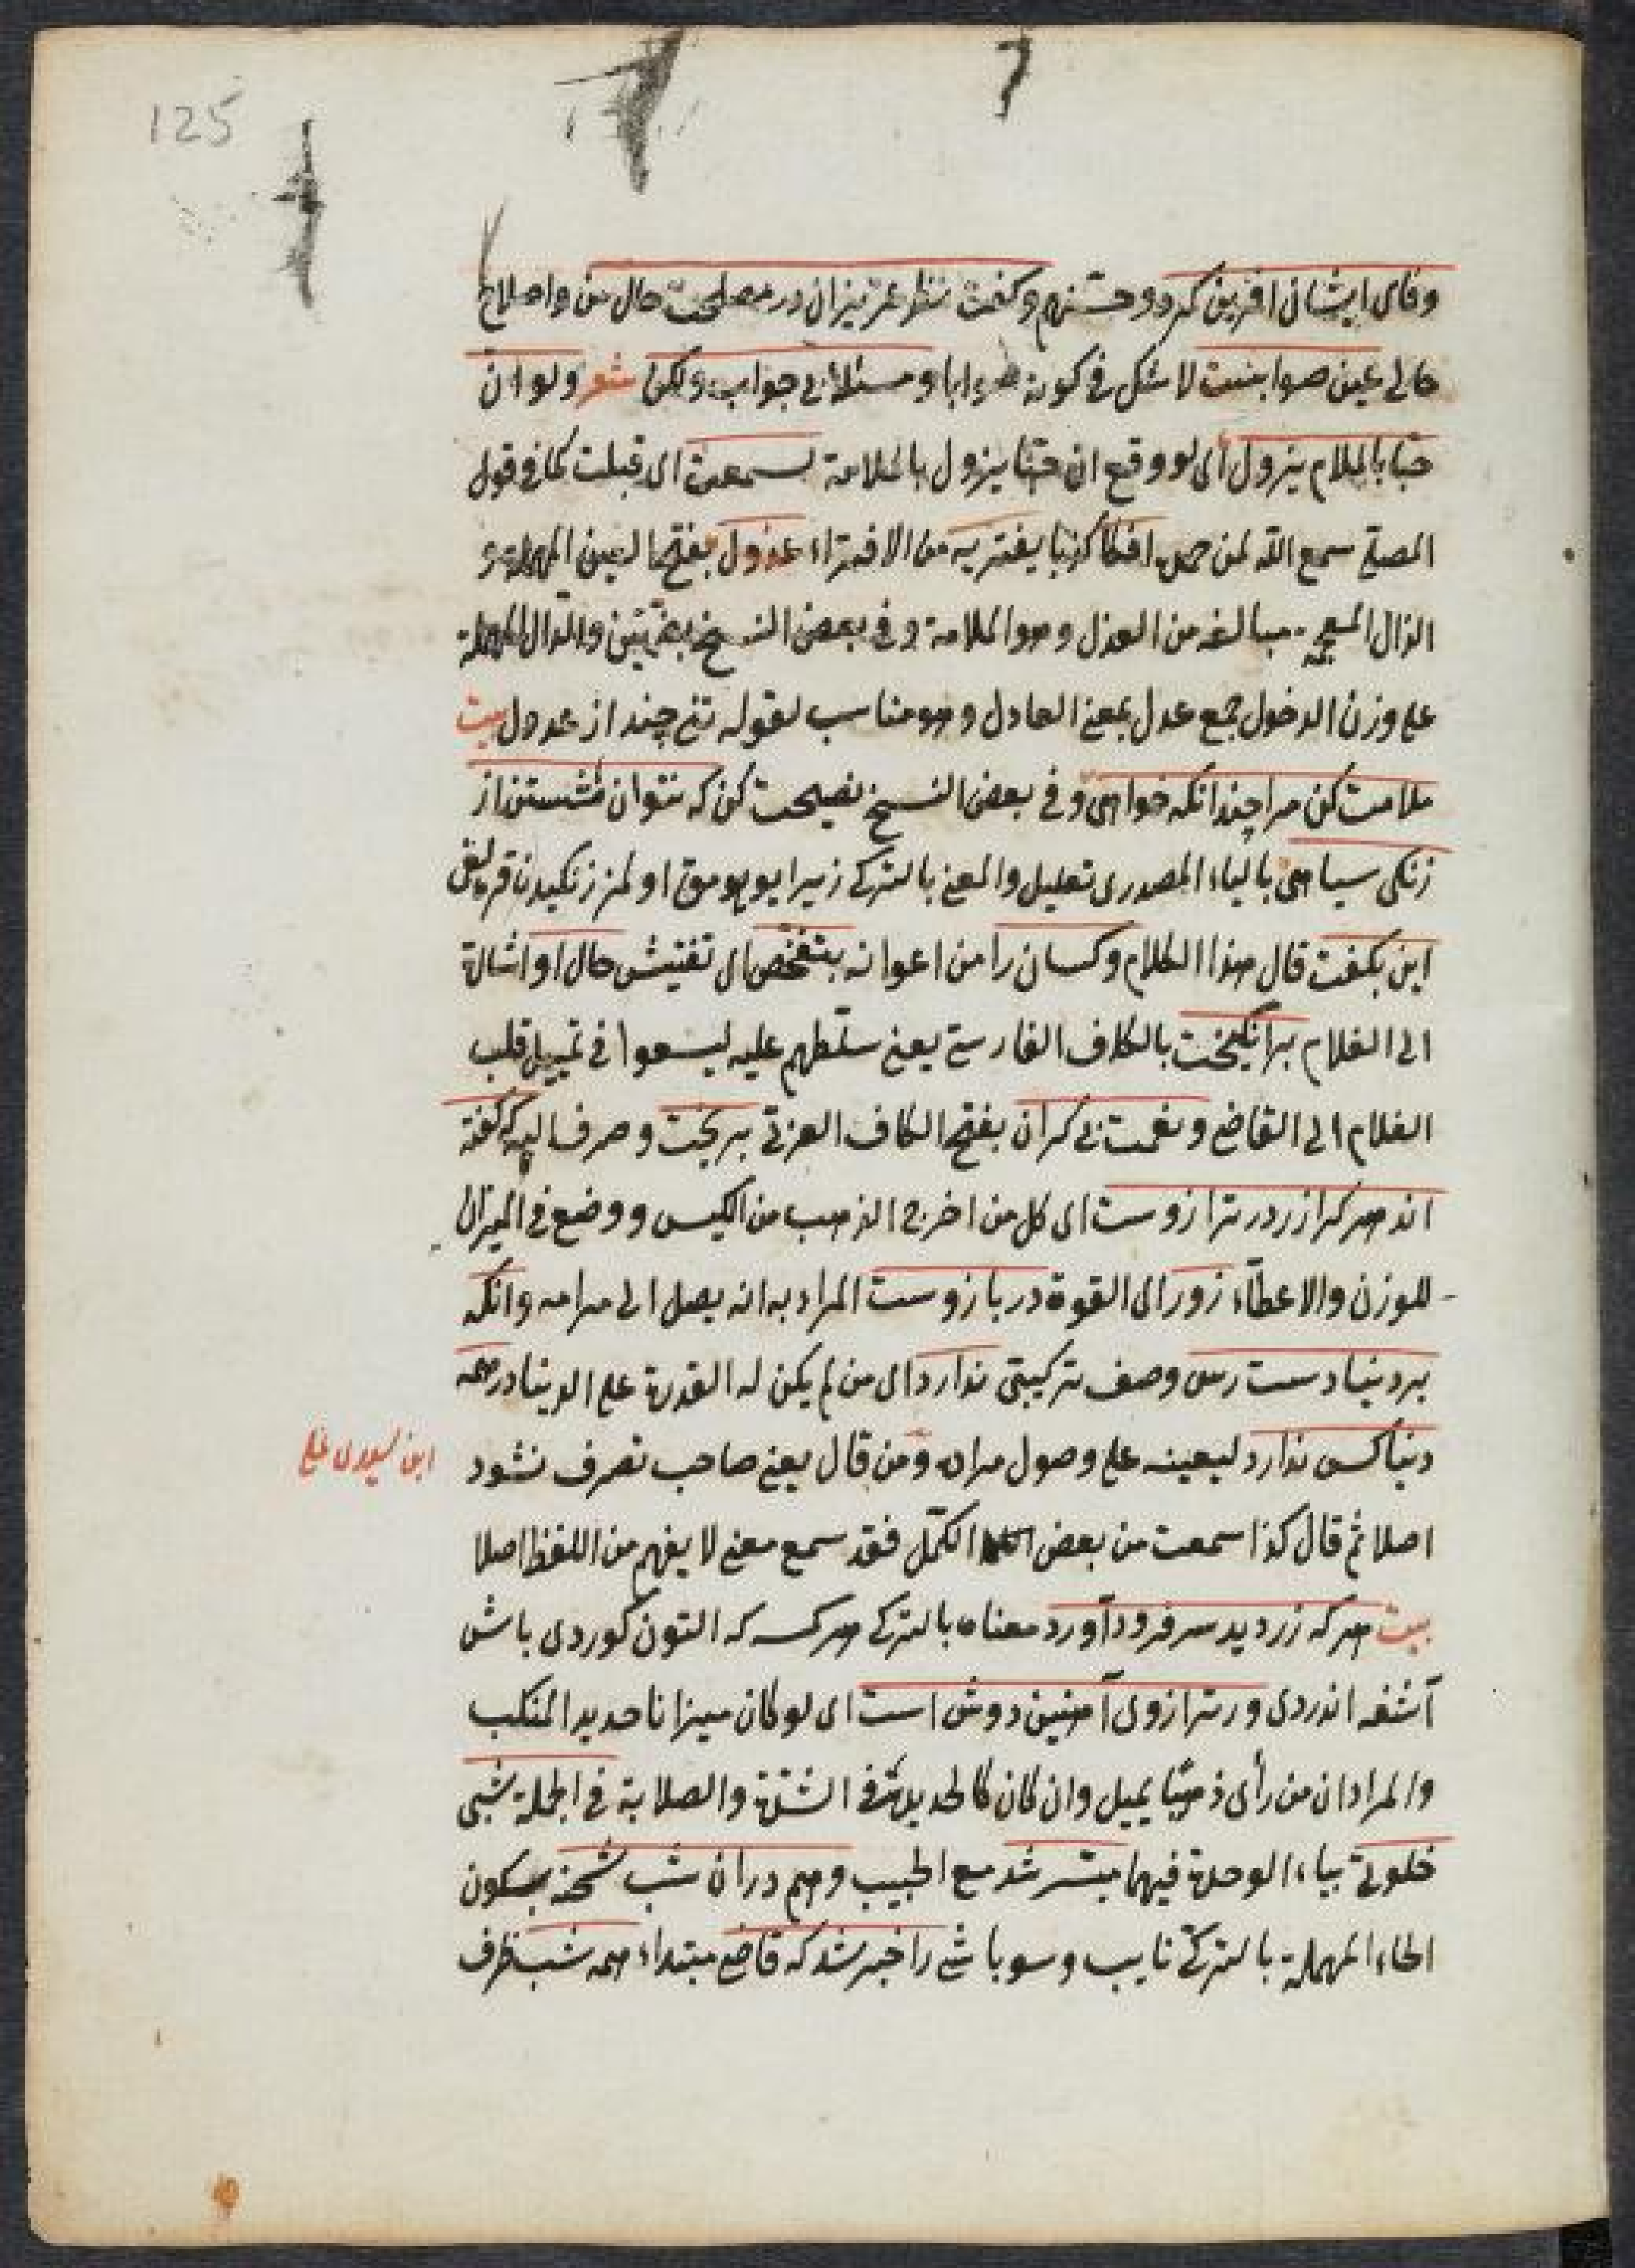 125
وفای ایشان افرین کرد ووحستنهم وکفت نظر عزیزان در مصلحت حال من واصلاح
حالی عین صوابست لا شک فی کونه صوابا ومسئلۀ بی جواب ولکن شعر ولو ان
حبّا بالملام یزول ای لو وقع ان حبّا یزول بالملامة لسمعت ای قبلت کما فی قول
المصلی سمع الله لمن حمده افکا کذبا یفتریه من الافتراء عذول بفتح العین المهملة و
الذال المعجمة مبالغه من العذل وهو الملامة وفی بعض النسخ بضمّتین والدال المهملة
علی وزن الدخول جمع عدل بمعنی العادل وهو مناسب لقوله تنی چند از عدول بیت
ملامت کن مرا چندانکه خواهی وفی بعض النسخ نصیحت کن که نتوان شستن از
زنکی سیاهی بالیاء المصدری تعلیل والمعنی بالترکی زیرا یویومق اولمز زنکیدن قره‌لغی
این بکفت قال هذا الکلام وکسان را من اعوانه بتفحّص ای تفتیش حال او اشارة
الی الغلام برانکیخت بالکاف الفارسی یعنی سلّطهم علیه لیسعوا فی تمییل قلب
الغلام الی القاضی ونعمت بی کران بفتح الکاف العربی بریخت وصرف الیه که کفته
اند هر کرا زر در ترازوست ای کل من اخرج الذهب من الکیس ووضع فی المیزان
للوزن والاعطاء زور ای القوة در بازوست المراد به انه یصل الی مرامه وانکه
بر دنیا دست رس وصف ترکیبی ندارد ای من لم یکن له القدرة علی الدنیا در همه
دنیا کس ندارد لیعینه علی وصول مراده ومن قال یعنی صاحب تصرف نشود
ابن سیدی علی
اصلا ثم قال کذا سمعت من بعض الکمّل فقد سمع معنی لا یفهم من اللفظ اصلا
بیت هر که زر دید سر فرود آورد معناه بالترکی هر کسه که التون کوردی باش
آشغه اندردی ور ترازوی آهنین دوش است ای لو کان میزانا حدید المنکب
والمراد ان من رأی ذهبا یمیل وان کان کالحدید فی الشدّة والصلابة فی الجملة شبی
خلوتی بیاء الوحدة فیهما میسّر شد مع الحبیب وهم دران شب شحنه بسکون
الحاء المهملة بالترکی نایب وسوباشی را خبر شد که قاضی مبتداء همه شب ظرف